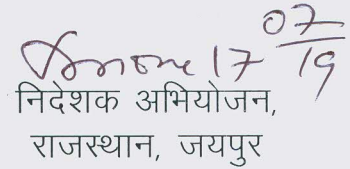 17 07/19
निदेशक अभियोजन,
राजस्थान, जयपुर